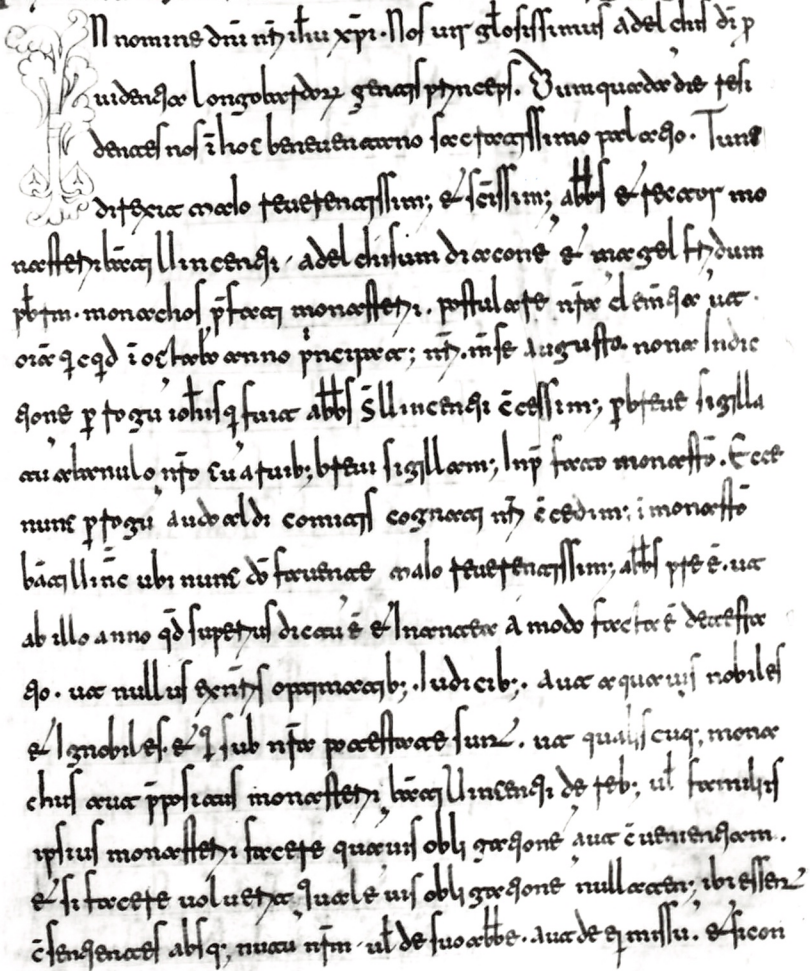 In nomine dn̄i nr̄i ih̄u xp̄i. Nos uir gl̄osissimus adelchis dī p
uidentiae longobardorꝝ gentis princeps. Dum quadā die resi
dentes nos ī hoc beneuentano sacratissimo palatio. Tunc
direxit maio reuerentissim; & sc̄issim; abb̄s & rector mo
nasterii bāti Uincentii, adelchisum diaconē & magelfridum
pb̄rm. monachos p̄fati monasterii. postulare nr̄ā clem̄tiā ut
oīā qicqd ī anno p̄ncipat; nr̄i. m̄se augusto. nona Indic
tione ꝑ rogū ioh̄is q̇ fuit abb̄s S̄ Uincentii c̄cessim; ꝑ breue sigilla
tū ab anulo nr̄o breui sigillam; In p̄fato monastr̄o. Ecce
nunc ꝑ rogū audoaldi comitis cognati nr̄i c̄cedim; ī monastr̄o
bāti Uinc̄ ubi nunc dō fauente maio reuerentissim; abb̄s p̄re ē. ut
ab illo anno qd̄ superius dictū ē & Inantea amodo facta ē detesta
tio. ut nullus ex nr̄is optimatib; Iudicib;. aut aquauis nobiles
& Ignobiles. & q̇ sub nr̄a potestate sunt. ut qualiscūq; mona
chus aut p̄positus monasterii bāti Uincentii de reb; ul̄ familiis
ipsius monasterii facere quauis obligationē aut c̄uenientiam.
& si facere uoluerit quale uis obligationē nullaten; ibi essent
c̄sentientes absq; nutu nr̄m. ul̄ de suo abb̄e. aut de ei missu. & si con